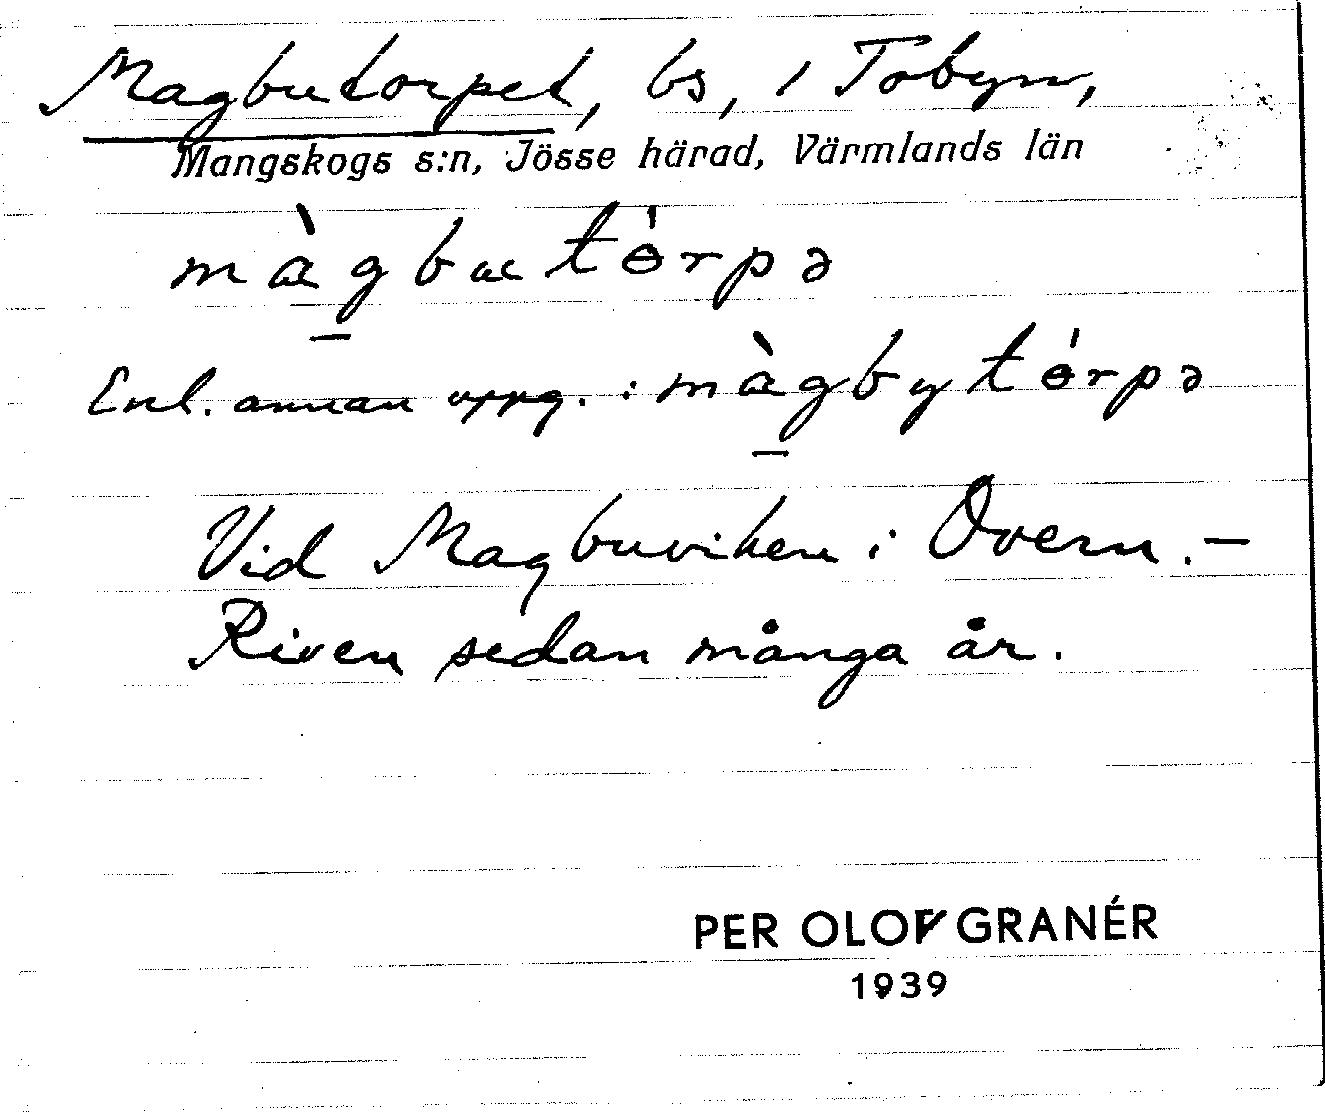 Magbutorpet, bs, i Tobyn,
Mangskogs s:n, Jösse härad, Värmlands län
màgbutɵ́rpə
Enl. annan uppg.: màgbytɵ́rpə
Vid Magbuviken i Övern. –
Riven sedan många år.
PER OLOF GRANÉR
1939